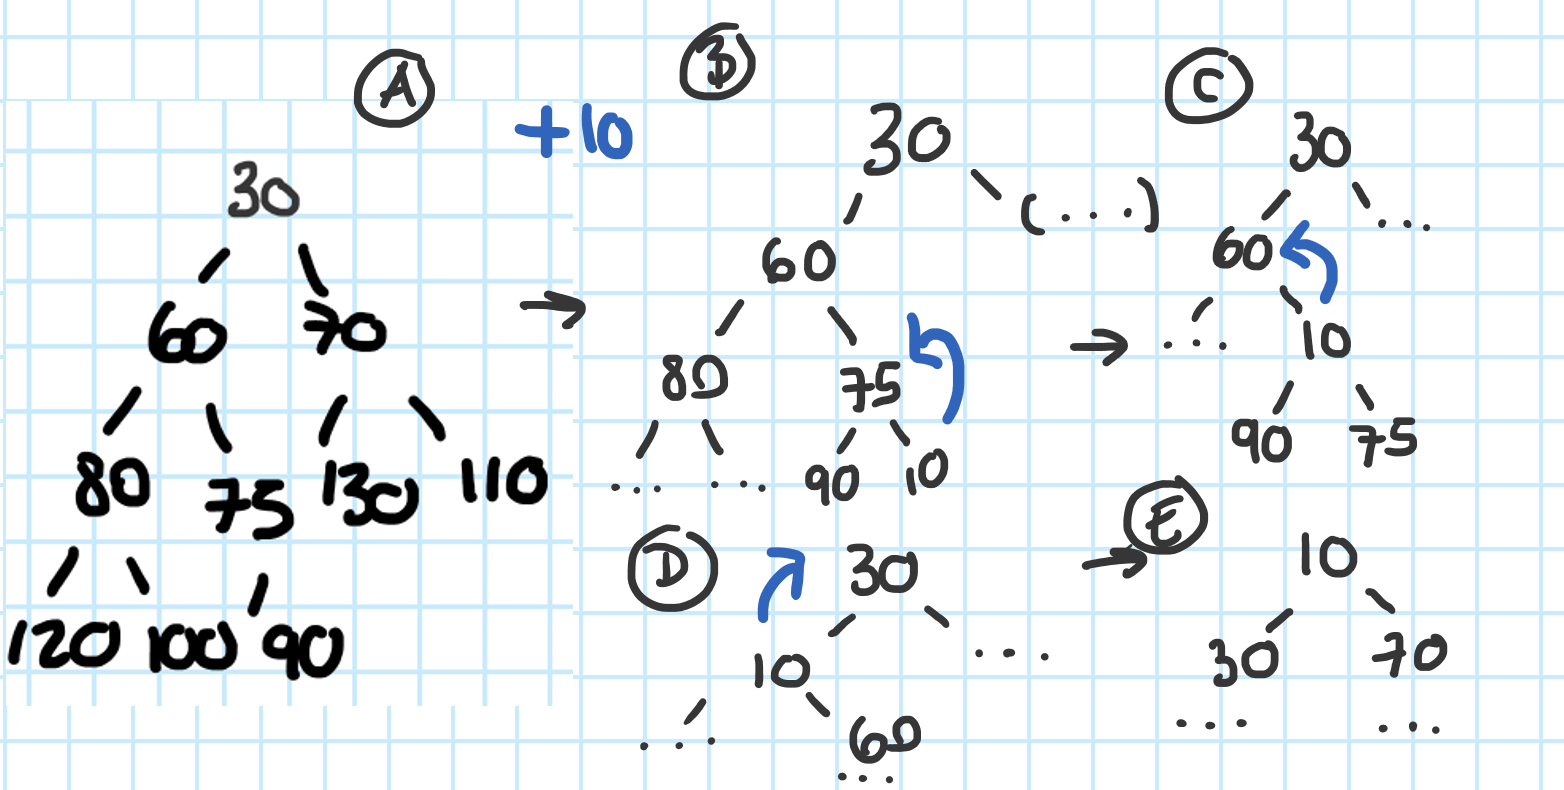 A
+10
30
60 70
80 75 130 110
120 100 90
B
30
60 (...)
80 75
... ... 90 10
C
30
60 ...
... 10
90 75
D
30
10 ...
... 60
...
E
10
30 70
... ...